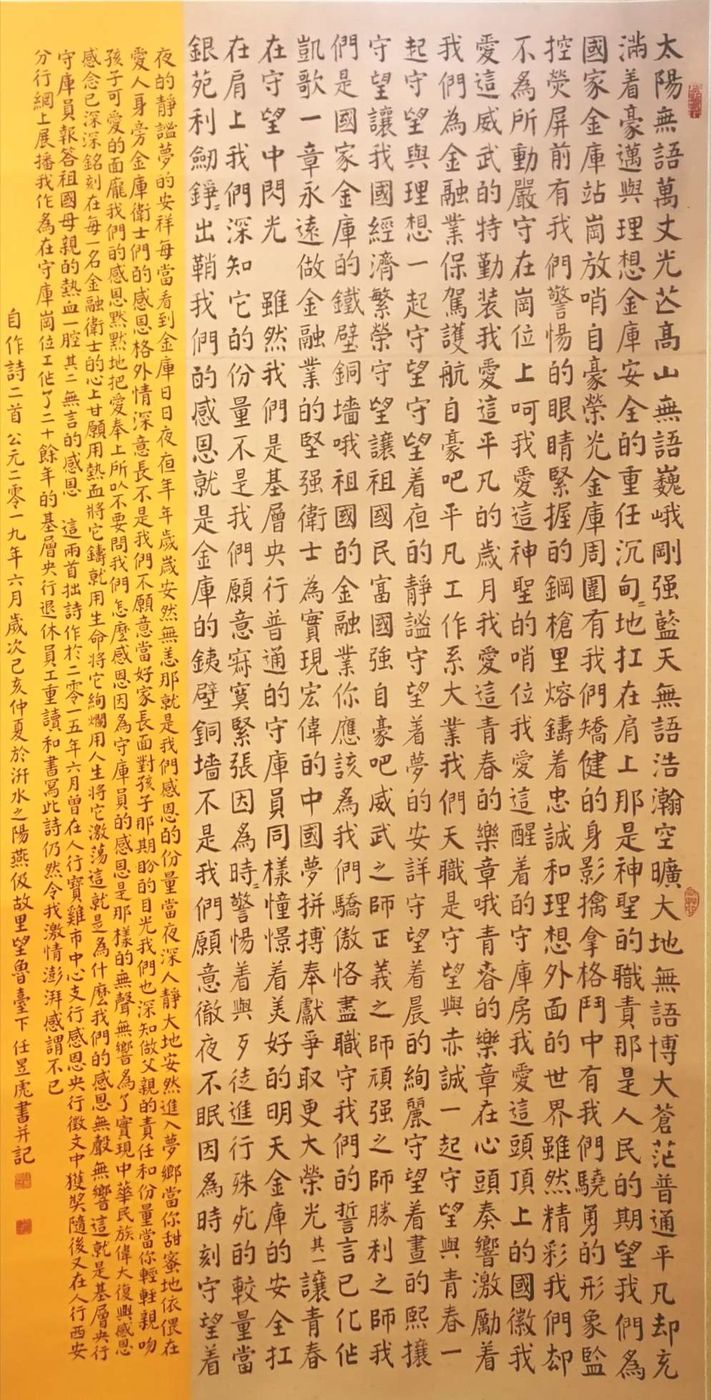 太陽無語萬丈光芒高山無語巍峨剛强藍天無語浩瀚空曠大地無語博大蒼茫普通平凡却充
滿着豪邁與理想金庫安全的重任沉甸〻地扛在肩上那是神聖的職責那是人民的期望我們為
國家金庫站崗放哨自豪榮光金庫周圍有我們矯健的身影擒拿格鬥中有我們驍勇的形象監
控熒屏前有我們警惕的眼睛緊握的鋼槍里熔鑄着忠誠和理想外面的世界雖然精彩我們却
不為所動嚴守在崗位上呵我愛這神聖的哨位我愛這醒着的守庫房我愛這頭頂上的國徽我
愛這威武的特勤装我愛這平凡的歲月我愛這青春的樂章哦青春的樂章在心頭奏響激勵着
我們為金融業保駕護航自豪吧平凡工作系大業我們天職是守望與赤誠一起守望與青春一
起守望與理想一起守望守望着夜的静謐守望着夢的安詳守望着晨的絢麗守望着晝的熙攘
守望讓我國經濟繁榮守望讓祖國民富國強自豪吧威武之師正義之師頑强之師勝利之師我
們是國家金庫的鐵壁銅墙哦祖國的金融業你應該為我們驕傲恪盡職守我們的誓言已化作
凱歌一章永遠做金融業的堅强衛士為實現宏偉的中國夢拼搏奉獻爭取更大榮光其一讓青春
在守望中閃光 雖然我們是基層央行普通的守庫員同樣憧憬着美好的明天金庫的安全扛
在肩上我們深知它的份量不是我們願意寂寞緊張因為時〻警惕着與歹徒進行殊死的較量當
銀苑利劍錚〻出鞘我們的感恩就是金庫的銕壁銅墙不是我們願意徹夜不眠因為時刻守望着
夜的靜謐夢的安祥每當看到金庫日日夜夜年年歲歲安然無恙那就是我們感恩的份量當夜深人靜大地安然進入夢鄉當你甜蜜地依偎在
愛人身旁金庫衛士們的感恩格外情深意長不是我們不願意當好家長面對孩子那期盼的目光我們也深知做父親的責任和份量當你輕輕親吻
孩子可愛的面龐我們的感恩默默地把愛奉上所以不要問我們怎麼感恩因為守庫員的感恩是那樣的無聲無響為了實現中華民族偉大復興感恩
感念已深深銘刻在每一名金融衛士的心上甘願用熱血將它鑄就用生命將它絢爛用人生將它激蕩這就是為什麼我們的感恩無聲無響這就是基層央行
守庫員報答祖國母親的熱血一腔其二無言的感恩 這兩首拙詩作於二零一五年六月曾在人行寶雞市中心支行感恩央行徵文中獲獎隨後又在人行西安
分行網上展播我作為在守庫崗位工作了二十餘年的基層央行退休員工重讀和書寫此詩仍然令我激情澎湃感謂不已
自作詩二首公元二零一九年六月歲次己亥仲夏於汧水之陽燕伋故里望魯臺下任昱虎書并記